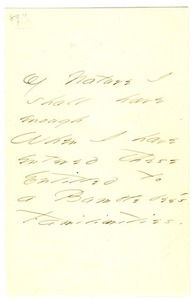 Of Nature I
shall have
enough
When I have
entered these
Entitled to
a Bumble bee's
Familiarities.